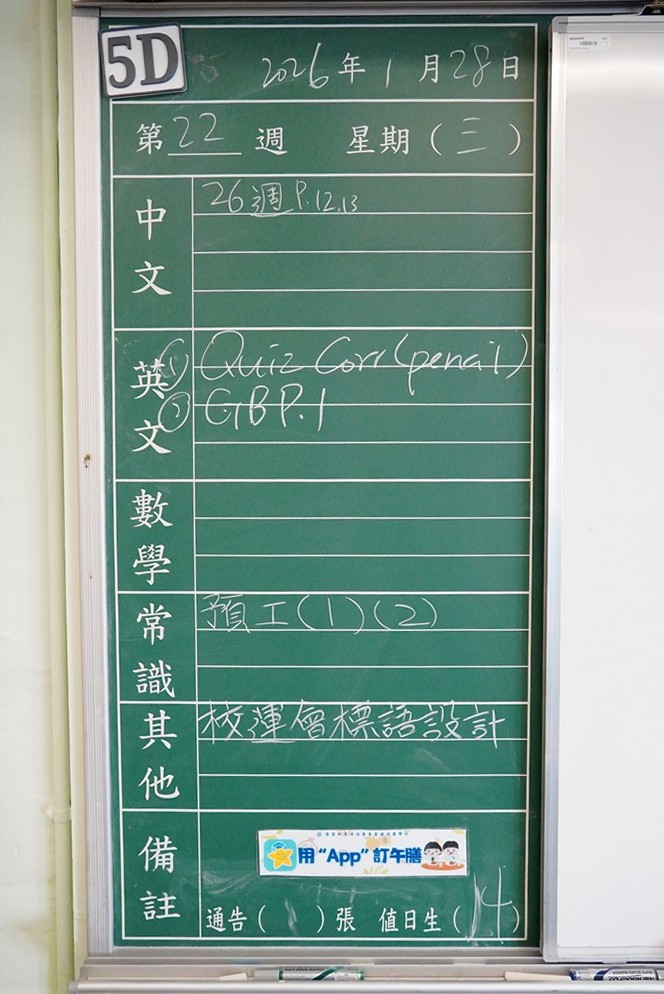 5D
2026年1月28日
第22週 星期(三)
中文
26週 P.12,13
英文
(1) Quiz Corr (pencil)
(2) GB P.1
數學
常識
預工(1)(2)
其他
校運會標語設計
備註
用“App”訂午膳
通告( )張 值日生(14)